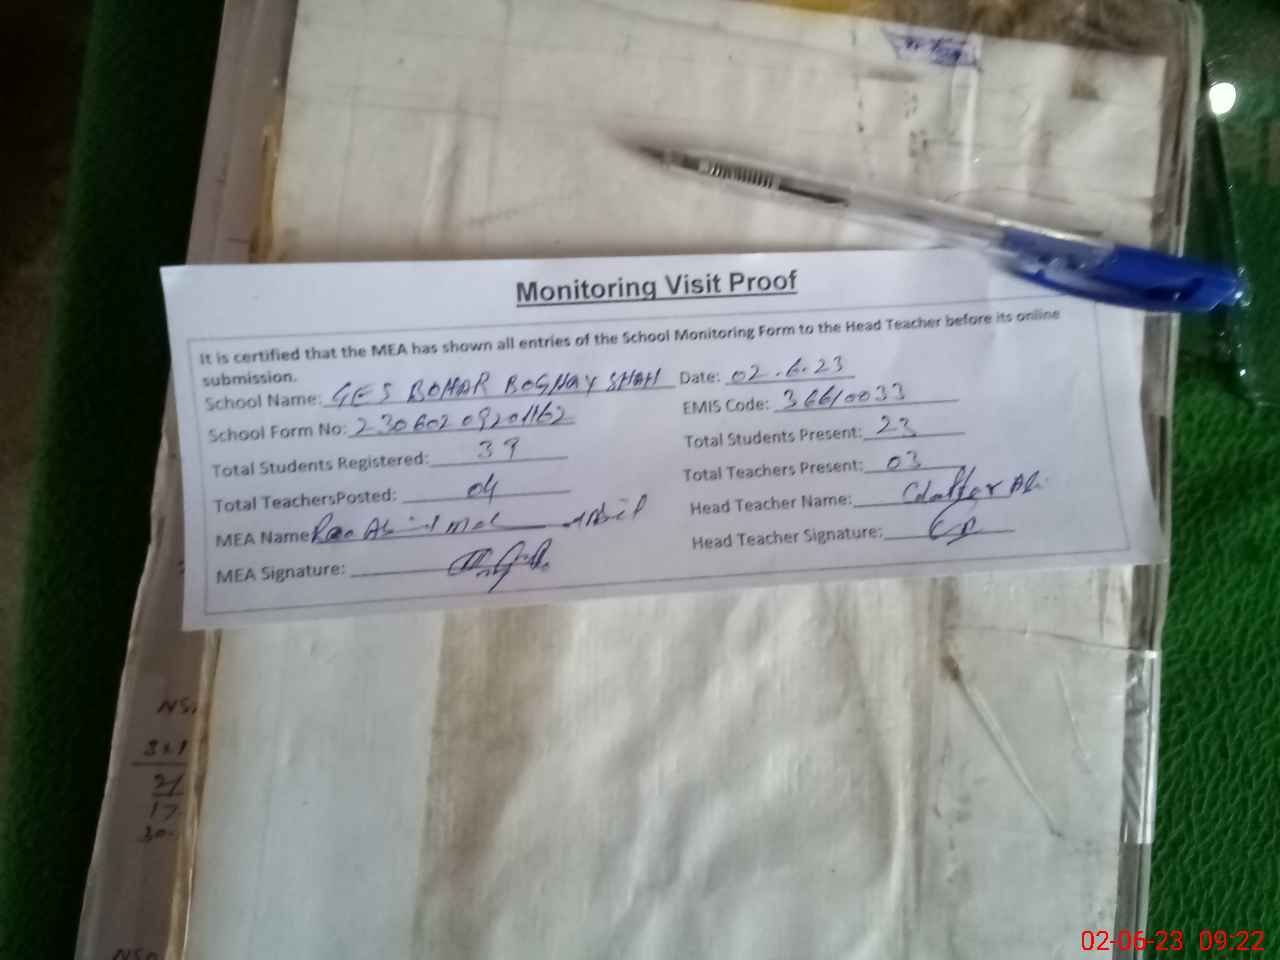 Monitoring Visit Proof
It is certified that the MEA has shown all entries of the School Monitoring Form to the Head Teacher before its online
submission.
School Name: GES BOHAR ROSHAY SHAH Date: 02.6.23
School Form No: 23060209201162 EMIS Code: 36610033
Total Students Registered: 39 Total Students Present: 23
Total TeachersPosted: 04 Total Teachers Present: 03
MEA Name Head Teacher Name:
MEA Signature: Head Teacher Signature:
NS
21
17
02-06-23 09:22